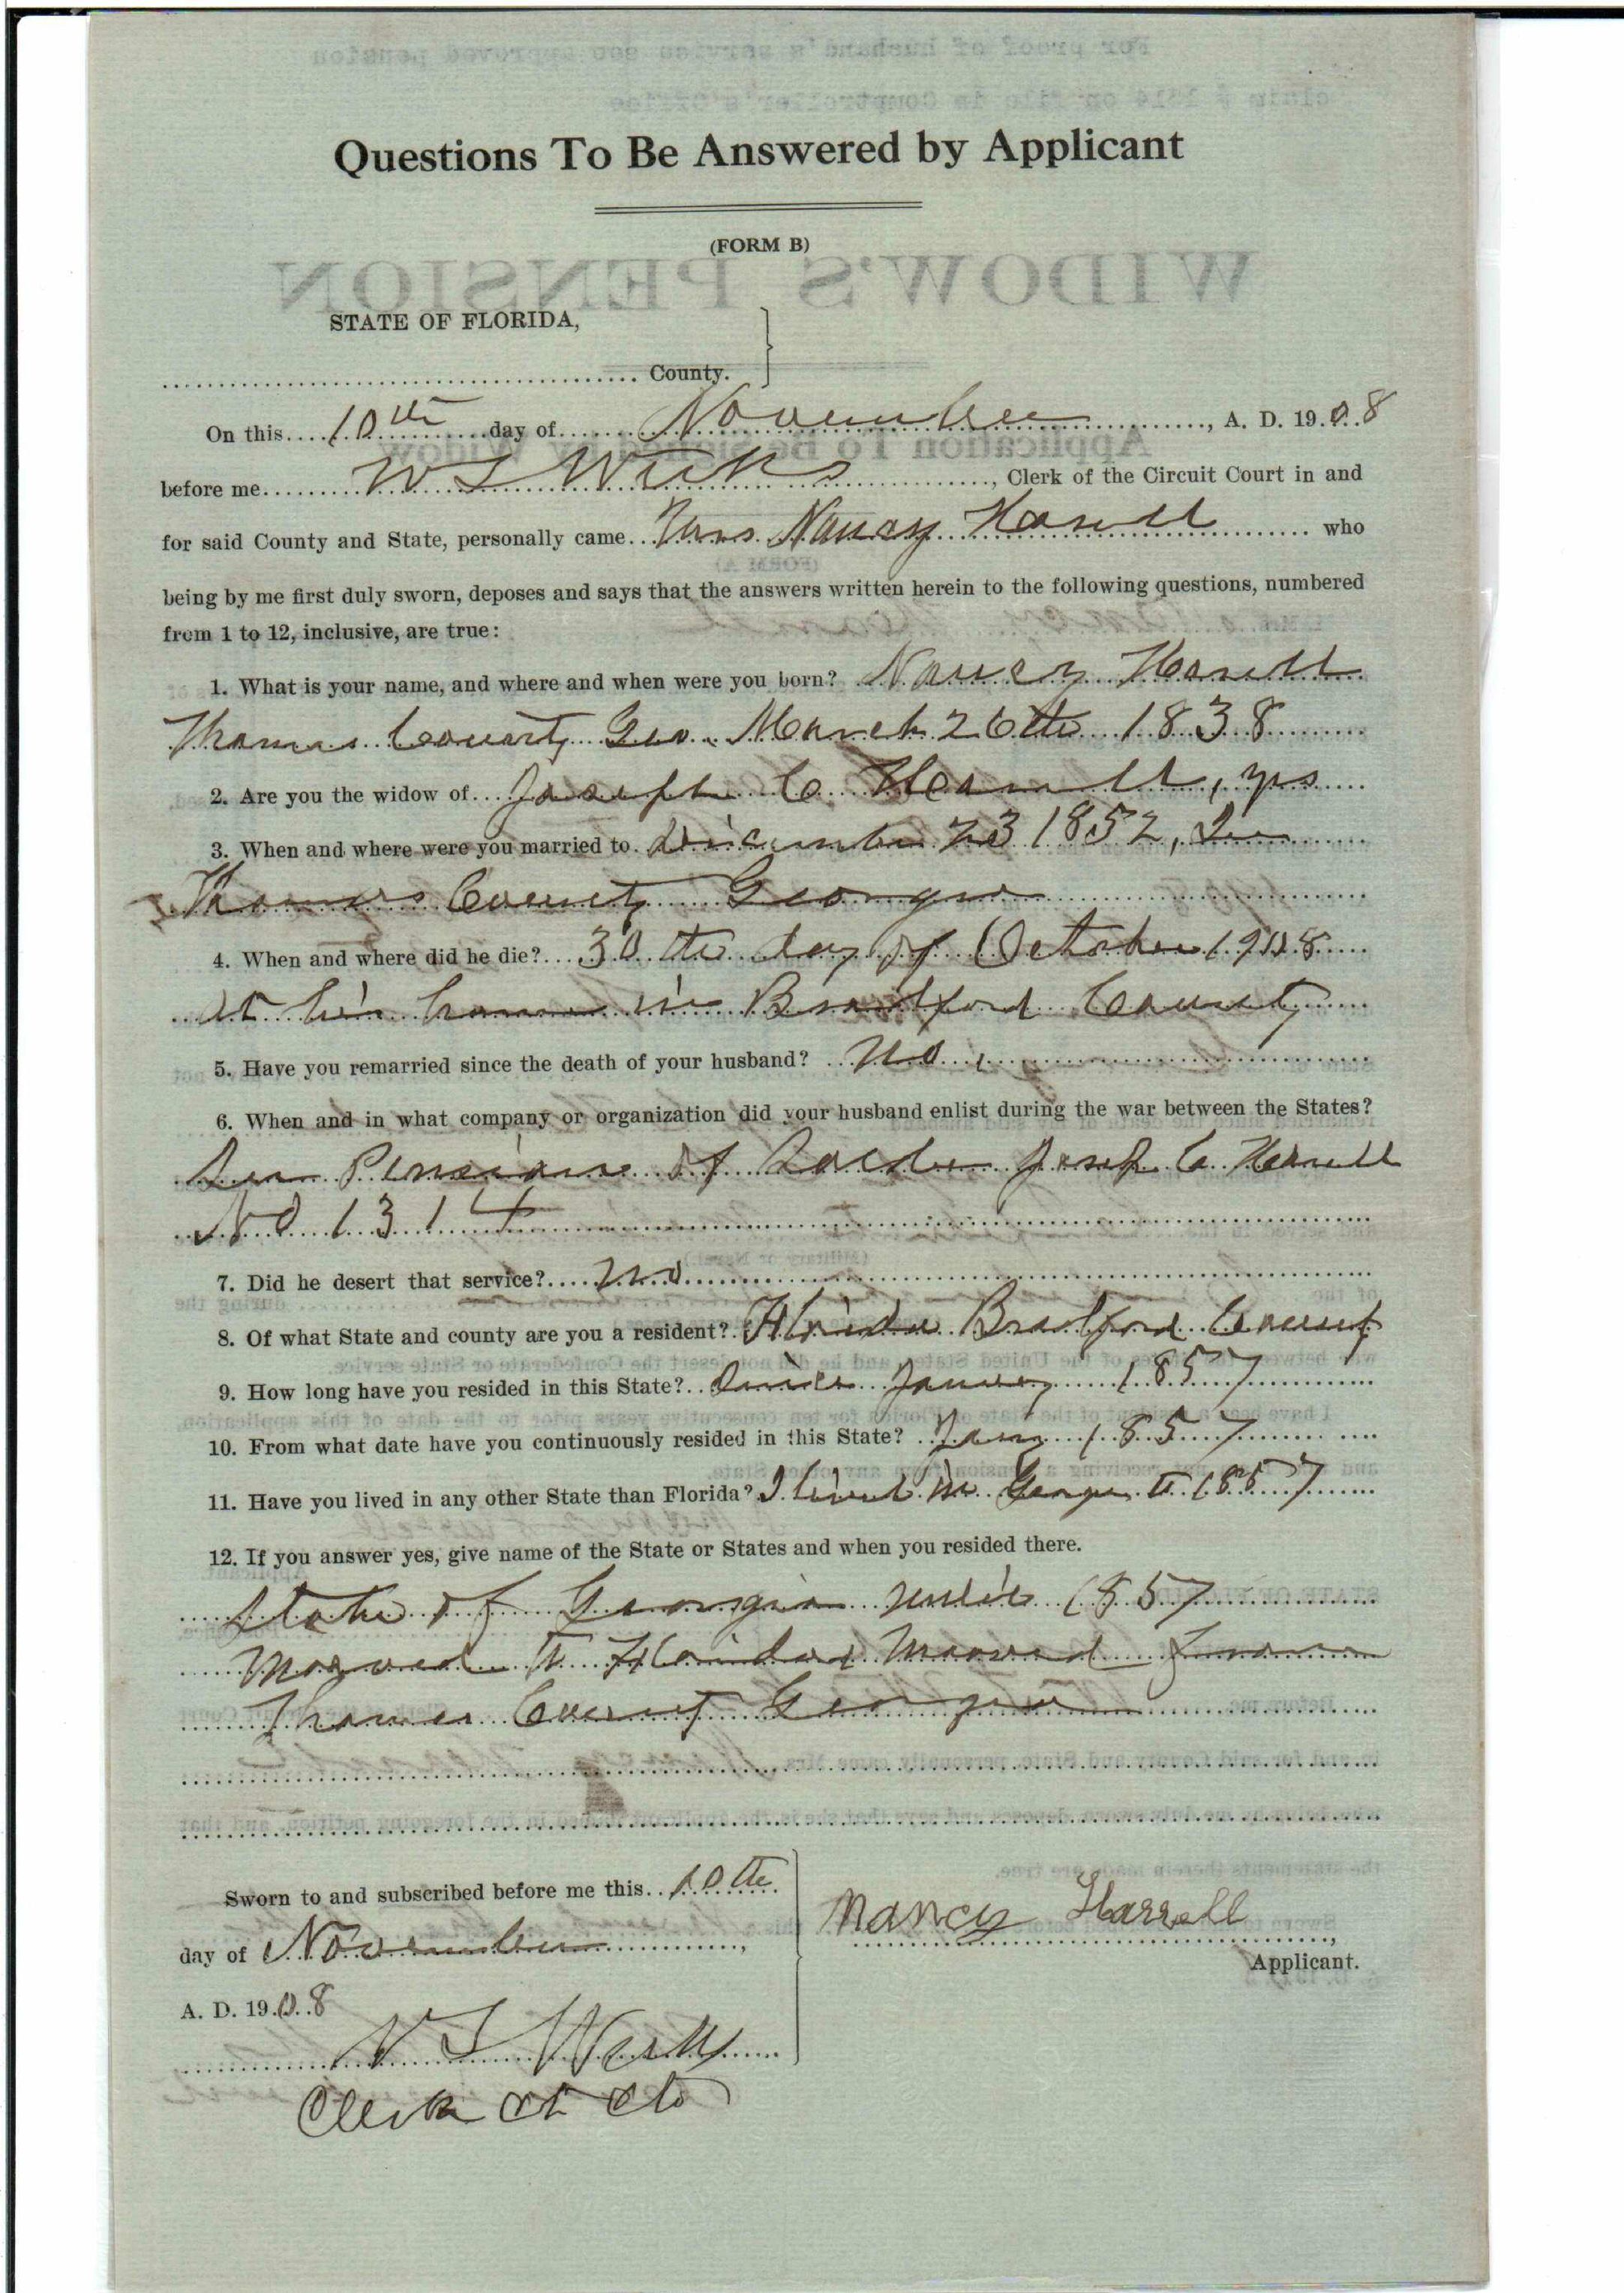 For proof of husband's service see approved pension
claim # 1314 on file in Comptroller's Office
Questions To Be Answered by Applicant
(FORM B)
WIDOW'S PENSION
STATE OF FLORIDA,
County.
On this 10th day of November, A. D. 1908
Application To Be Signed by Widow
before me W S Weeks, Clerk of the Circuit Court in and
for said County and State, personally came Mrs. Nancy Harrell who
(FORM A)
being by me first duly sworn, deposes and says that the answers written herein to the following questions, numbered
from 1 to 12, inclusive, are true:
1. What is your name, and where and when were you born? Nancy Harrell
Thomas County Geo. March 26th 1838
2. Are you the widow of Joseph C Harrell, yes
3. When and where were you married to December 23 1852, In
Thomas County Georgia
4. When and where did he die? 30th day of October 1908
at his home in Bradford County
5. Have you remarried since the death of your husband? no
6. When and in what company or organization did your husband enlist during the war between the States?
See Pension of Josep C Harrell
No 1314
7. Did he desert that service? no
8. Of what State and county are you a resident? Florida Bradford County
9. How long have you resided in this State? Since January 1857
10. From what date have you continuously resided in this State? Jany 1857
11. Have you lived in any other State than Florida? I lived in Georgia to 1857
12. If you answer yes, give name of the State or States and when you resided there.
State of Georgia until 1857
Mooved to Florida Mooved from
Thomas County Georgia
Sworn to and subscribed before me this 10th
day of November,
A. D. 1908
Nancy Harrell
Applicant.
W S Weeks
Clerk Ct Ct